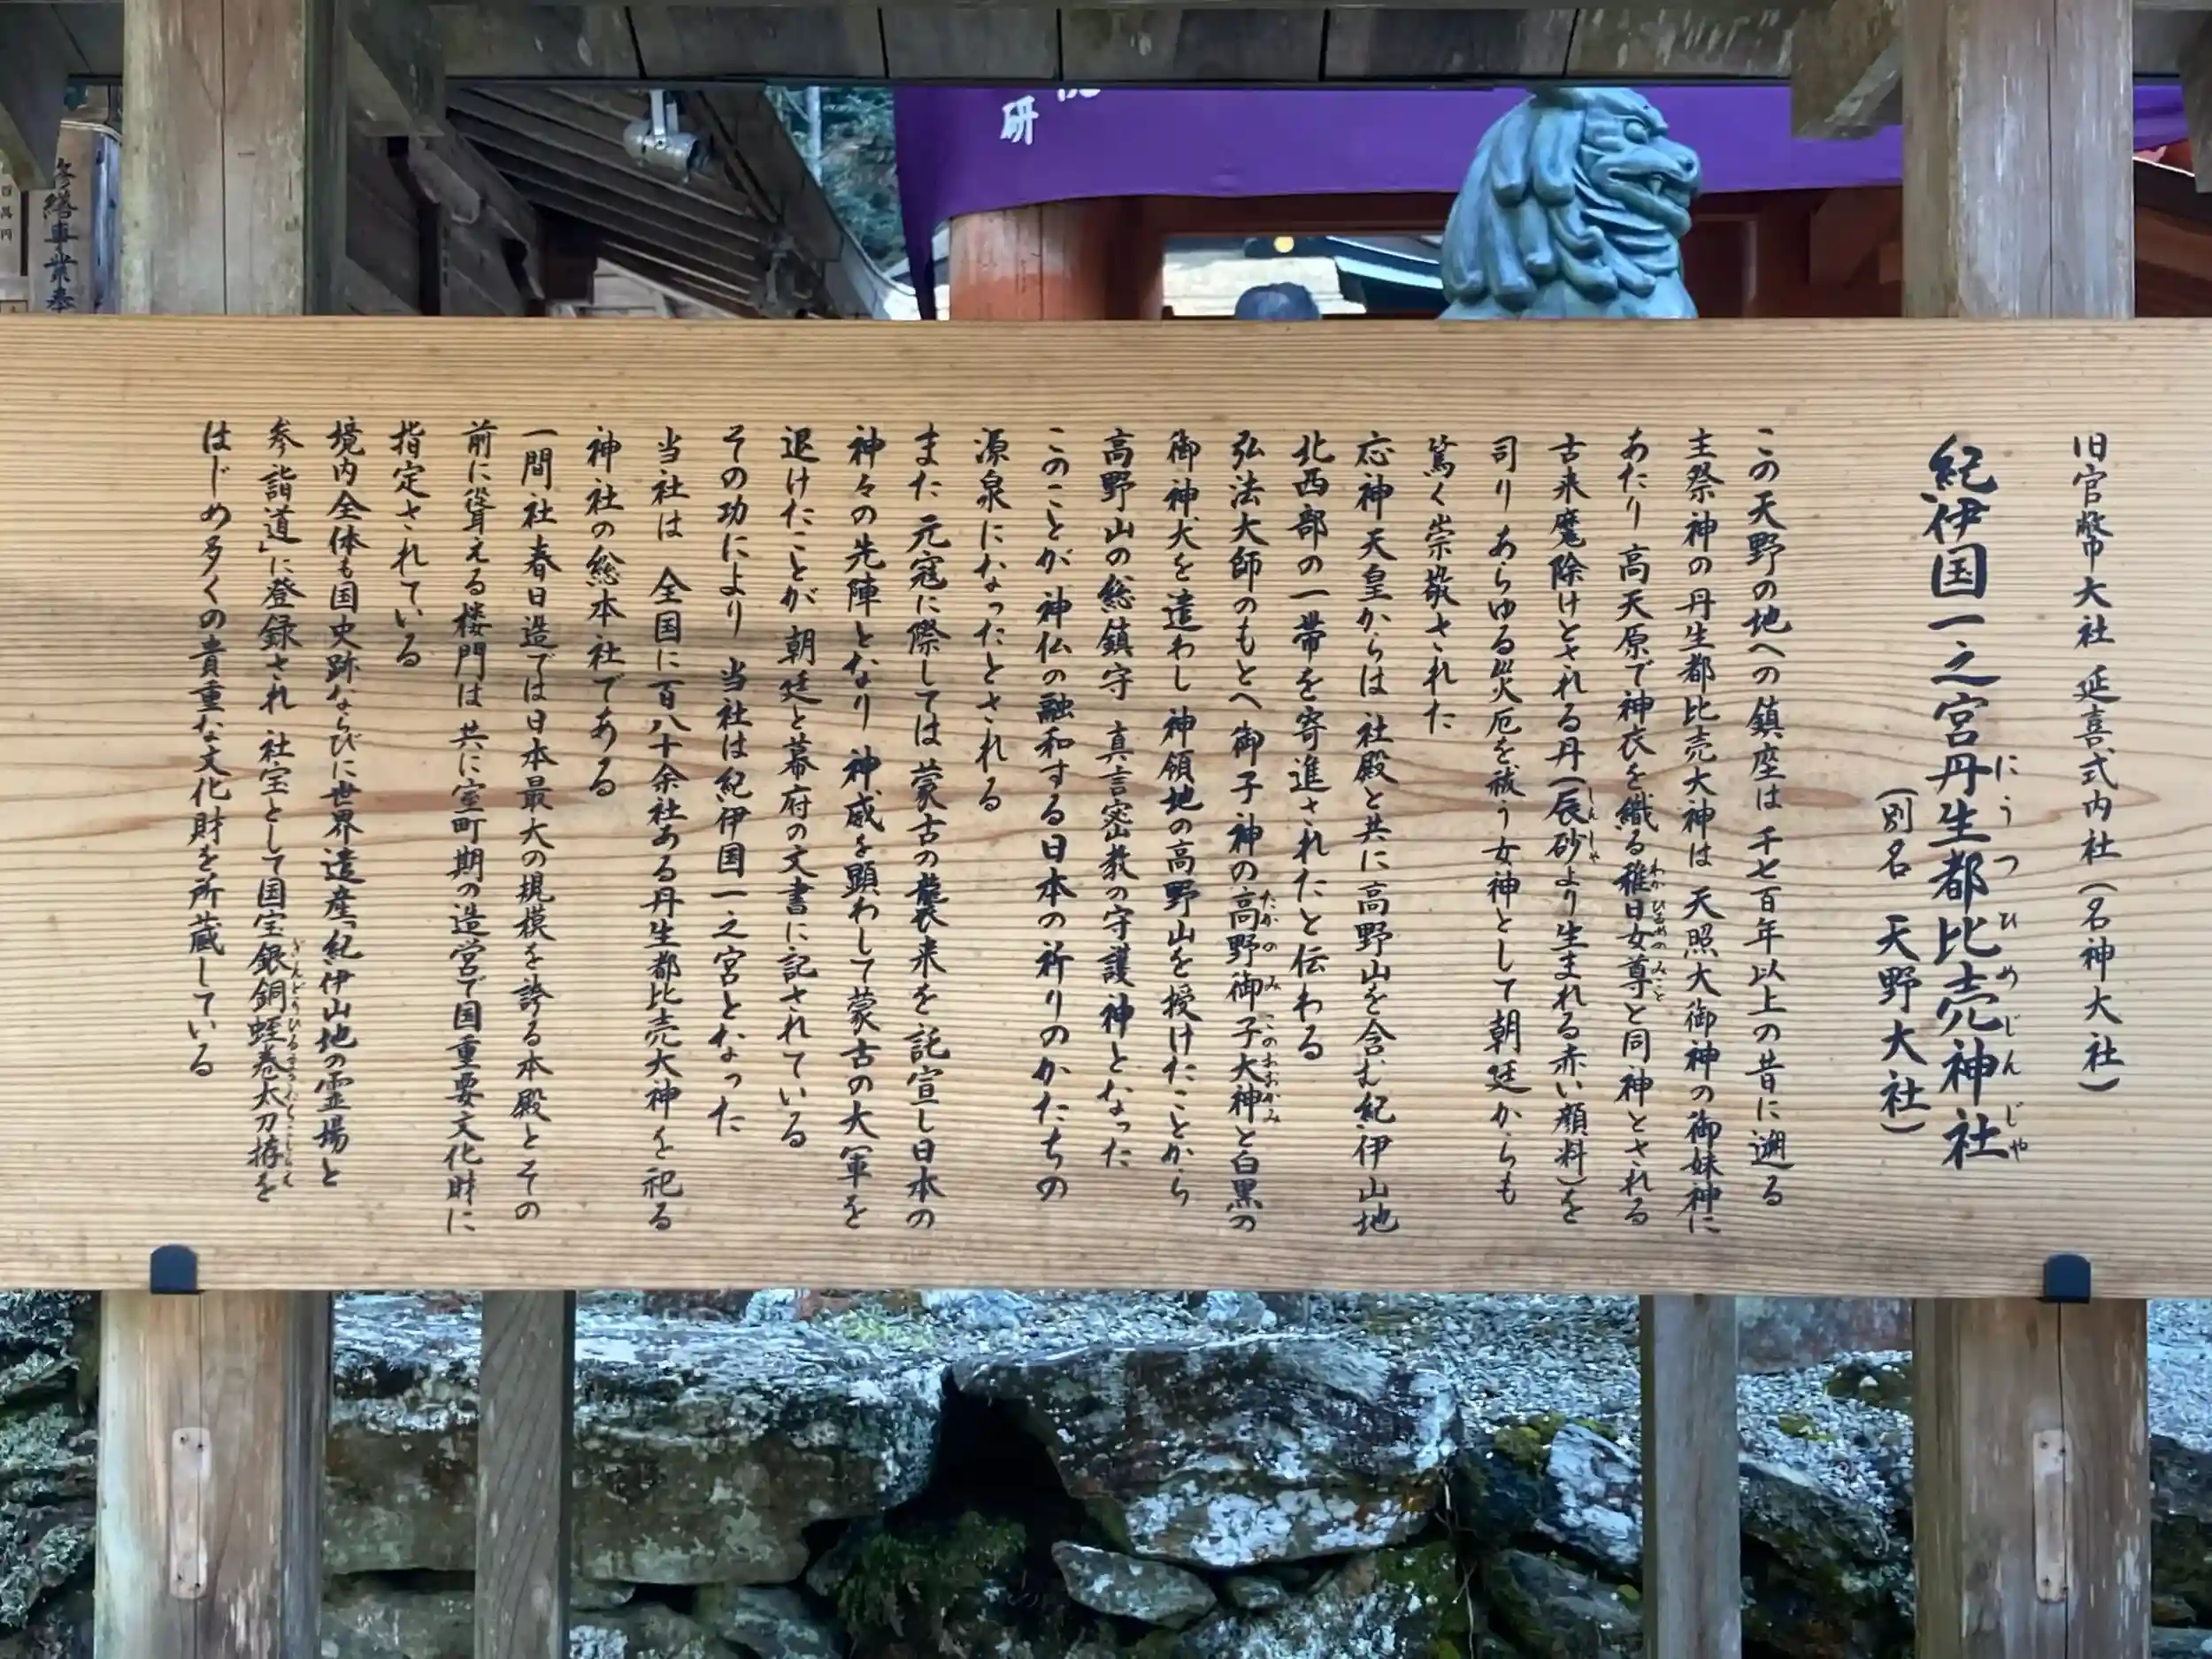 旧官幣大社 延喜式内社(名神大社)
紀伊国一之宮丹生都比売神社
にうつひめじんじゃ
(別名 天野大社)
この天野の地への鎮座は 千七百年以上の昔に遡る
主祭神の丹生都比売大神は 天照大御神の御妹神に
あたり 高天原で神衣を織る稚日女尊と同神とされる
わかひるめのみこと
古来魔除けとされる丹(辰砂より生まれる赤い顔料)を
しんしゃ
司り あらゆる災厄を祓う女神として朝廷からも
篤く崇敬された
応神天皇からは 社殿と共に高野山を含む紀伊山地
北西部の一帯を寄進されたと伝わる
弘法大師のもとへ 御子神の高野御子大神と白黒の
たかのみこのおおかみ
御神犬を遣わし 神領地の高野山を授けたことから
高野山の総鎮守 真言密教の守護神となった
このことが 神仏の融和する日本の祈りのかたちの
源泉になったとされる
また 元寇に際しては 蒙古の襲来を託宣し日本の
神々の先陣となり 神威を顕わして蒙古の大軍を
退けたことが 朝廷と幕府の文書に記されている
その功により 当社は紀伊国一之宮となった
当社は 全国に百八十余社ある丹生都比売大神を祀る
神社の総本社である
一間社春日造では日本最大の規模を誇る本殿とその
前に聳える楼門は 共に室町期の造営で国重要文化財に
指定されている
境内全体も国史跡ならびに世界遺産「紀伊山地の霊場と
参詣道」に登録され 社宝として国宝銀銅蛭巻太刀拵を
ぎんどうひるまきたちこしらえ
はじめ多くの貴重な文化財を所蔵している
研
修繕事業奉
百萬円